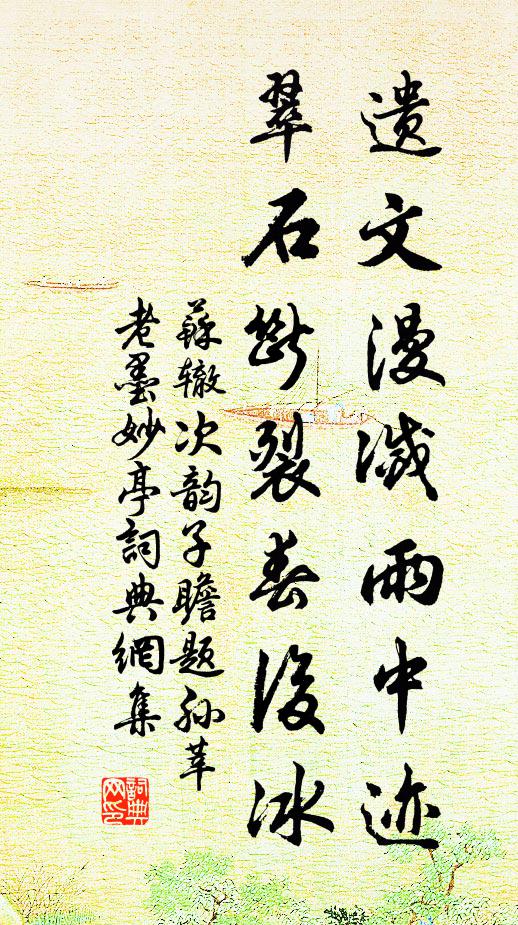 遗文漫滅雨中迹
翠石斷裂春後冰
蘇辙次韵子瞻题孙莘
老墨妙亭詞典網集
詞典网印